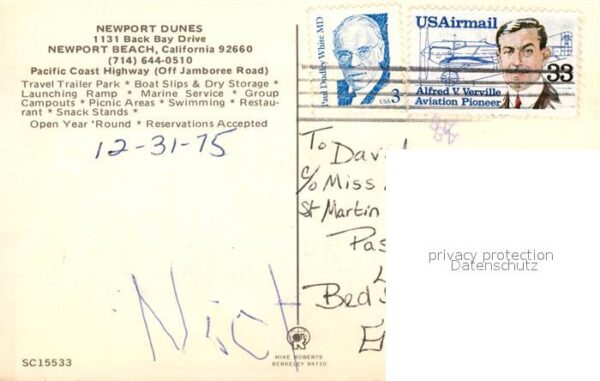 NEWPORT DUNES
1131 Back Bay Drive
NEWPORT BEACH, California 92660
(714) 644-0510
Pacific Coast Highway (Off Jamboree Road)
Travel Trailer Park * Boat Slips & Dry Storage *
Launching Ramp * Marine Service * Group
Campouts * Picnic Areas * Swimming * Restau-
rant * Snack Stands *
Open Year 'Round * Reservations Accepted
12-31-75
Paul Dudley White MD
USA 3c
USAirmail
33
Alfred V. Verville
Aviation Pioneer
To David
c/o Miss
St Martin
Pas
Bed
privacy protection
Datenschutz
SC15533
MIKE ROBERTS
BERKELEY 94710